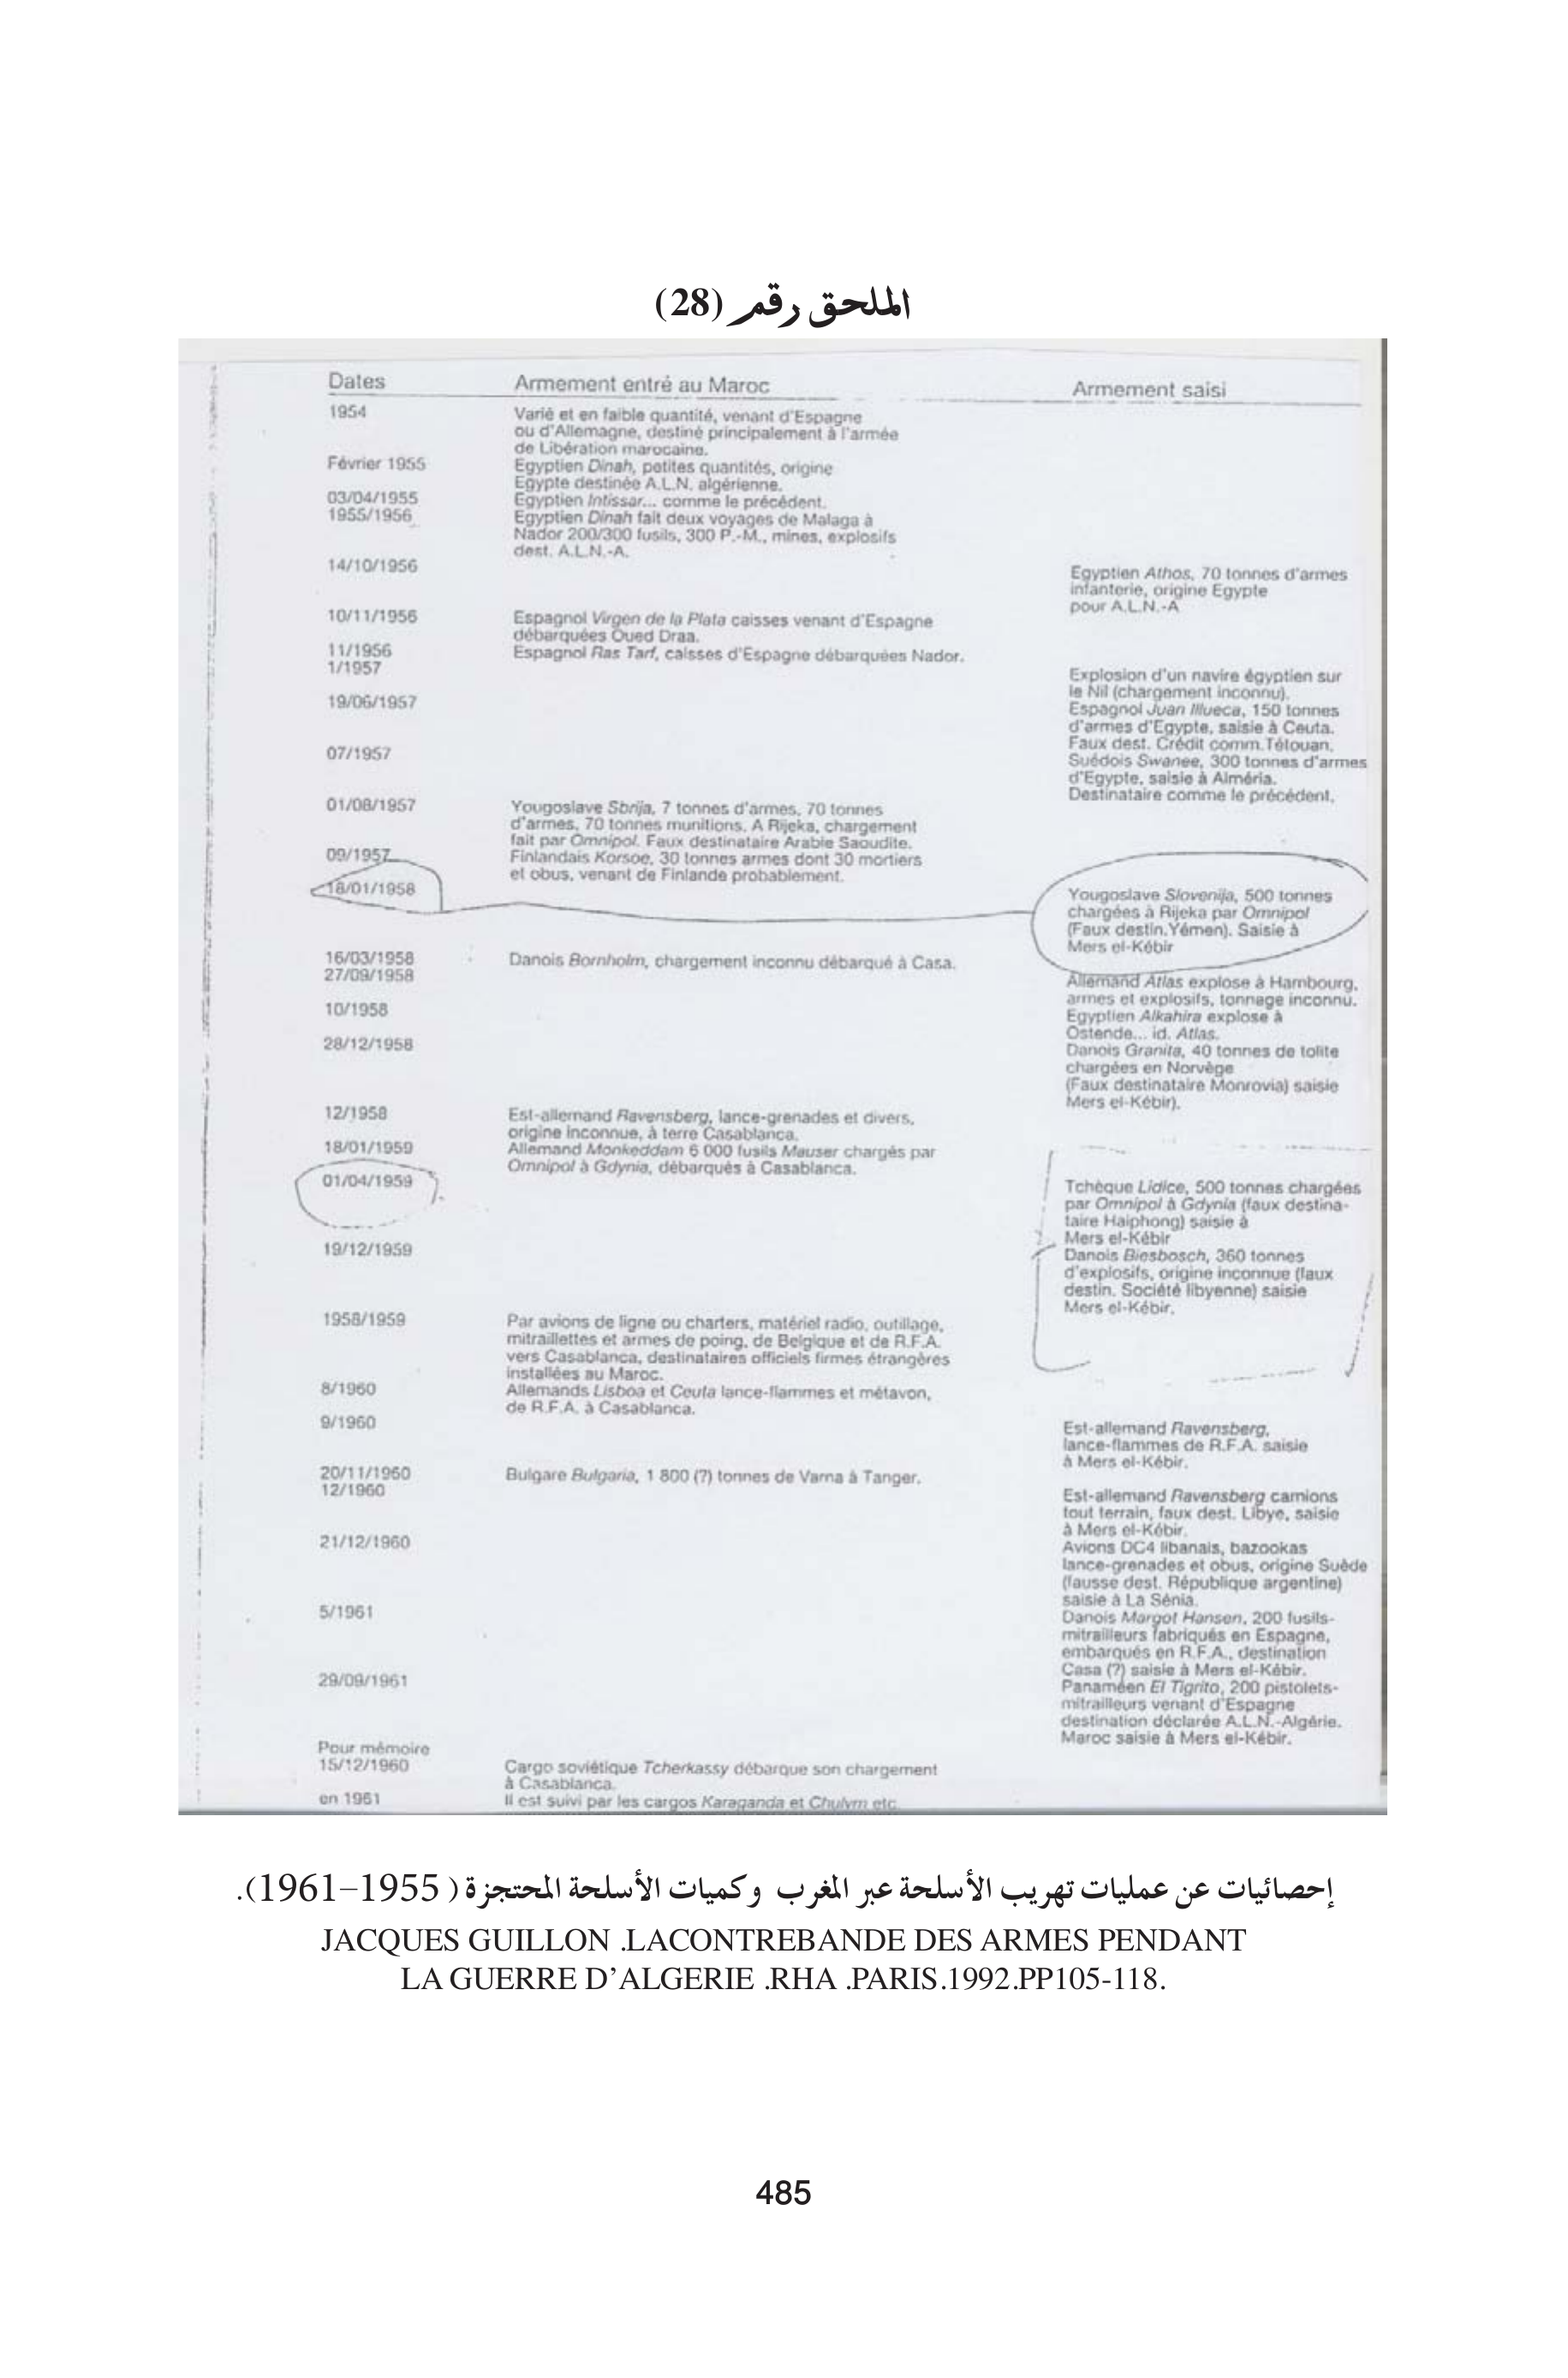 الملحق رقم (28)
Dates Armement entré au Maroc Armement saisi
1954 Varié et en faible quantité, venant d'Espagne
ou d'Allemagne, destiné principalement à l'armée
de Libération marocaine.
Février 1955 Egyptien Dinah, petites quantités, origine
Egypte destinée A.L.N. algérienne.
03/04/1955 Egyptien Intissar... comme le précédent.
1955/1956 Egyptien Dinah fait deux voyages de Malaga à
Nador 200/300 fusils, 300 P.-M., mines, explosifs
dest. A.L.N.-A.
14/10/1956 Egyptien Athos, 70 tonnes d'armes
infanterie, origine Egypte
pour A.L.N.-A
10/11/1956 Espagnol Virgen de la Plata caisses venant d'Espagne
débarquées Oued Draa.
11/1956 Espagnol Ras Tarf, caisses d'Espagne débarquées Nador.
1/1957 Explosion d'un navire égyptien sur
le Nil (chargement inconnu).
19/06/1957 Espagnol Juan Illueca, 150 tonnes
d'armes d'Egypte, saisie à Ceuta.
Faux dest. Crédit comm.Tétouan.
07/1957 Suédois Swanee, 300 tonnes d'armes
d'Egypte, saisie à Alméria.
Destinataire comme le précédent.
01/08/1957 Yougoslave Sbrija, 7 tonnes d'armes, 70 tonnes
d'armes, 70 tonnes munitions. A Rijeka, chargement
fait par Omnipol. Faux destinataire Arabie Saoudite.
09/1957 Finlandais Korsoe, 30 tonnes armes dont 30 mortiers
et obus, venant de Finlande probablement.
18/01/1958 Yougoslave Slovenija, 500 tonnes
chargées à Rijeka par Omnipol
(Faux destin.Yémen). Saisie à
Mers el-Kébir
16/03/1958 Danois Bornholm, chargement inconnu débarqué à Casa.
27/09/1958 Allemand Atlas explose à Hambourg,
armes et explosifs, tonnage inconnu.
10/1958 Egyptien Alkahira explose à
Ostende... id. Atlas.
28/12/1958 Danois Granita, 40 tonnes de tolite
chargées en Norvège
(Faux destinataire Monrovia) saisie
Mers el-Kébir).
12/1958 Est-allemand Ravensberg, lance-grenades et divers,
origine inconnue, à terre Casablanca.
18/01/1959 Allemand Monkeddam 6 000 fusils Mauser chargés par
Omnipol à Gdynia, débarqués à Casablanca.
01/04/1959 Tchèque Lidice, 500 tonnes chargées
par Omnipol à Gdynia (faux destina-
taire Haiphong) saisie à
Mers el-Kébir
19/12/1959 Danois Biesbosch, 360 tonnes
d'explosifs, origine inconnue (faux
destin. Société libyenne) saisie
Mers el-Kébir.
1958/1959 Par avions de ligne ou charters, matériel radio, outillage,
mitraillettes et armes de poing, de Belgique et de R.F.A.
vers Casablanca, destinataires officiels firmes étrangères
installées au Maroc.
8/1960 Allemands Lisboa et Ceuta lance-flammes et métavon,
de R.F.A. à Casablanca.
9/1960 Est-allemand Ravensberg,
lance-flammes de R.F.A. saisie
à Mers el-Kébir.
20/11/1960 Bulgare Bulgaria, 1 800 (?) tonnes de Varna à Tanger.
12/1960 Est-allemand Ravensberg camions
tout terrain, faux dest. Libye, saisie
à Mers el-Kébir.
21/12/1960 Avions DC4 libanais, bazookas
lance-grenades et obus, origine Suède
(fausse dest. République argentine)
saisie à La Sénia.
5/1961 Danois Margot Hansen, 200 fusils-
mitrailleurs fabriqués en Espagne,
embarqués en R.F.A., destination
Casa (?) saisie à Mers el-Kébir.
29/09/1961 Panaméen El Tigrito, 200 pistolets-
mitrailleurs venant d'Espagne
destination déclarée A.L.N.-Algérie.
Maroc saisie à Mers el-Kébir.
Pour mémoire
15/12/1960 Cargo soviétique Tcherkassy débarque son chargement
à Casablanca.
en 1961 Il est suivi par les cargos Karaganda et Chulym etc.
إحصائيات عن عمليات تهريب الأسلحة عبر المغرب وكميات الأسلحة المحتجزة (1955–1961).
JACQUES GUILLON .LACONTREBANDE DES ARMES PENDANT
LA GUERRE D'ALGERIE .RHA .PARIS.1992.PP105-118.
485